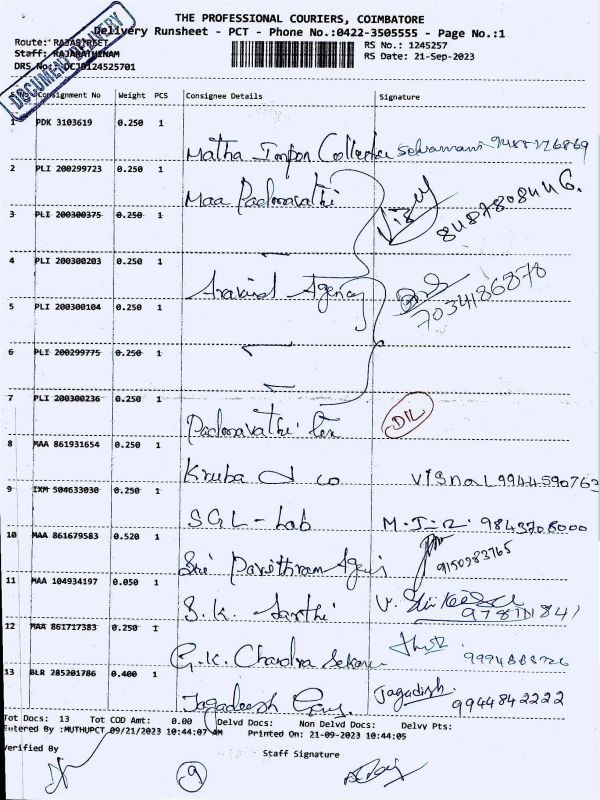 THE PROFESSIONAL COURIERS, COIMBATORE
Delivery Runsheet - PCT - Phone No.:0422-3505555 - Page No.:1
Route: RAJASTREET RS No.: 1245257
Staff: RAJARATHENAM RS Date: 21-Sep-2023
DRS No: DCJB124525701
DOCUMENT DELIVERY
S.No Consignment No Weight PCS Consignee Details Signature
1 PDK 3103619 0.250 1
Matha Collection Selvamani
2 PLI 200299723 0.250 1
Maa Padmavathi Vijay 8487808446.
3 PLI 200300375 0.250 1
4 PLI 200300203 0.250 1
Aravind Agency 7034186870
5 PLI 200300104 0.250 1
6 PLI 200299775 0.250 1
7 PLI 200300236 0.250 1
Padmavathi Tex DIL
8 MAA 861931654 0.250 1
Kruba & co Visnal 9944590763
9 IXM 504633030 0.250 1
SGL-Lab 9843708000
10 MAA 861679583 0.520 1
Sri 9150983765
11 MAA 104934197 0.050 1
S.K. Sarthi
12 MAA 861717383 0.250 1
G.K. Chandra Sekaran
13 BLR 285201786 0.400 1
Jagadeesh Jagadish 9944842222
Tot Docs: 13 Tot COD Amt: 0.00 Delvd Docs: Non Delvd Docs: Delvy Pts:
Entered By :MUTHUPCT 09/21/2023 10:44:07 AM Printed On: 21-09-2023 10:44:05
Verified By Staff Signature
9